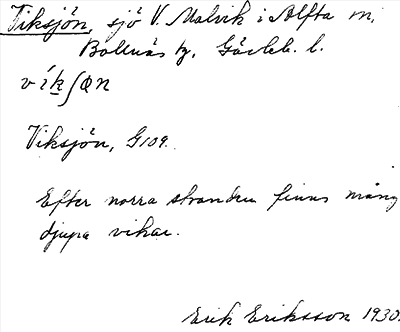 Viksjön, sjö V. Malvik i Alfta sn,
Bollnäs tg, Gävleb. l.
víkʃøn
Viksjön, G109.
Efter norra stranden finns mång
djupa vikar.
Erik Eriksson 1930.